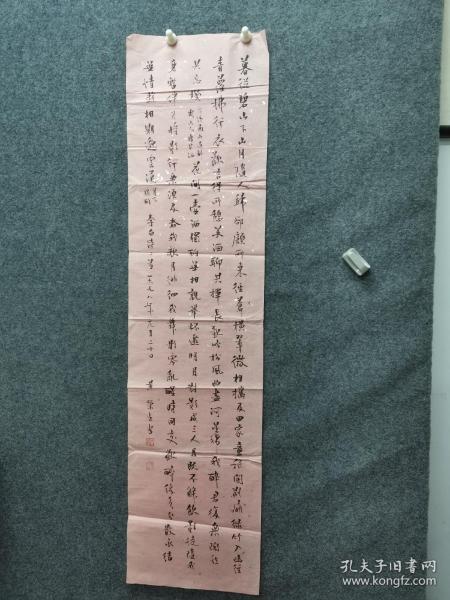 暮從碧山下山月隨人歸卻顧所來徑蒼橫翠微相攜及田家童稚開荊扉綠竹入幽徑
青蘿拂行衣歡言得所憩美酒聊共揮長歌吟松風曲盡河星稀我醉君復樂陶然
共忘機 花間一壺酒獨酌無相親舉杯邀明月對影成三人月既不解飲影徒隨我
身暫伴月將影行樂須及春我歌月徘徊我舞影零亂醒時同交歡醉後各分散永結
無情遊相期邈雲漢 李白詩 一九七八年元月二十日 黃
孔夫子旧书网